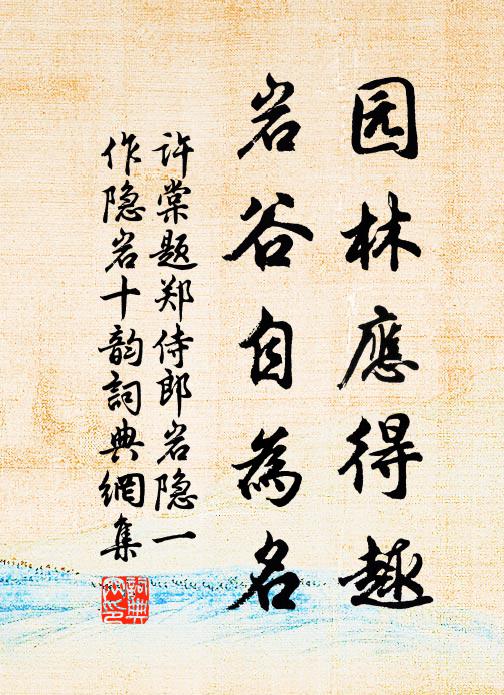 园林應得趣
岩谷自為名
许棠题郑侍郎岩隐一
作隐岩十韵詞典網集